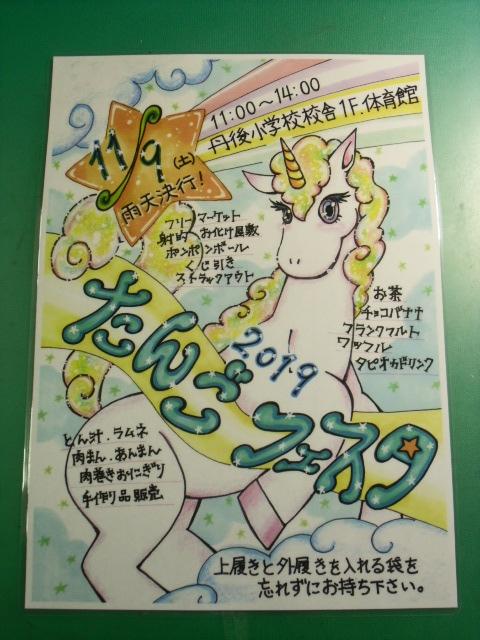 11:00〜14:00
丹後小学校校舎1F.体育館
11/9(土)
雨天決行!
フリーマーケット
射的 お化け屋敷
ポンポンボール
くじ引き
ストラックアウト
お茶
チョコバナナ
フランクフルト
ワッフル
タピオカドリンク
たんごフェスタ
2019
とん汁.ラムネ
肉まん.あんまん
肉巻きおにぎり
手作り品販売
上履きと外履きを入れる袋を
忘れずにお持ち下さい。